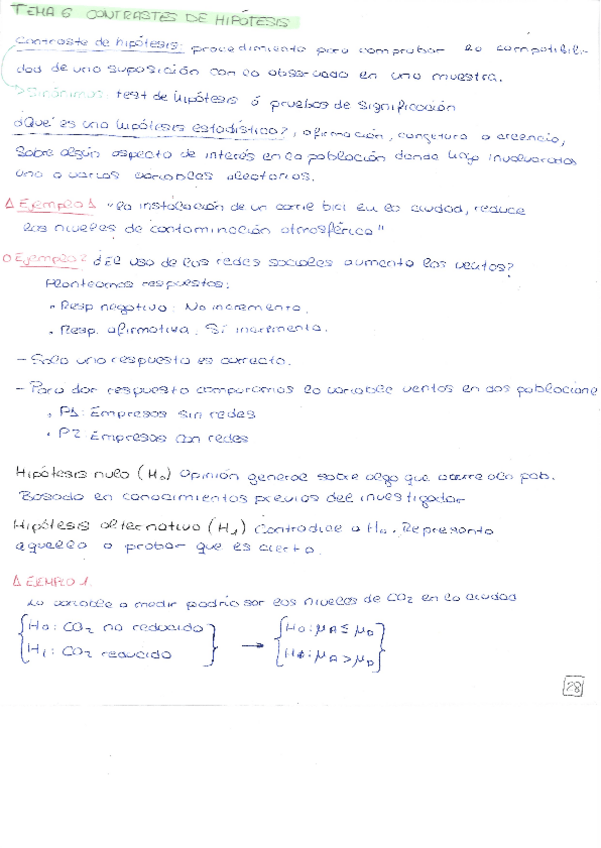 TEMA 6 CONTRASTES DE HIPÓTESIS
Contraste de hipótesis: procedimiento para comprobar la compatibili-
dad de una suposición con lo observado en una muestra.
Sinónimos: test de hipótesis ó pruebas de significación
¿Qué es una hipótesis estadística?, afirmación, conjetura o creencia,
sobre algún aspecto de interés en la población donde hay involucradas
una o varias variables aleatorias.
Δ Ejemplo 1 "la instalación de un carril bici en la ciudad, reduce
los niveles de contaminación atmosférica"
O Ejemplo 2 ¿El uso de las redes sociales aumenta las ventas?
Planteamos respuestas:
• Resp negativa: No incrementa.
• Resp. afirmativa: Sí incrementa.
- Solo una respuesta es correcta.
- Para dar respuesta comparamos la variable ventas en dos poblacione
• P1: Empresas sin redes
• P2 Empresas con redes
Hipótesis nula (H₀) Opinión general sobre algo que ocurre en pob.
Basada en conocimientos previos del investigador
Hipótesis alternativa (H₁) Contradice a H₀. Representa
aquello a probar que es cierto.
Δ EJEMPLO 1.
La variable a medir podría ser los niveles de CO₂ en la ciudad
{H₀: CO₂ no reducido} → {H₀: μA ≤ μD}
{H₁: CO₂ reducido} {H₁: μA > μD}
28